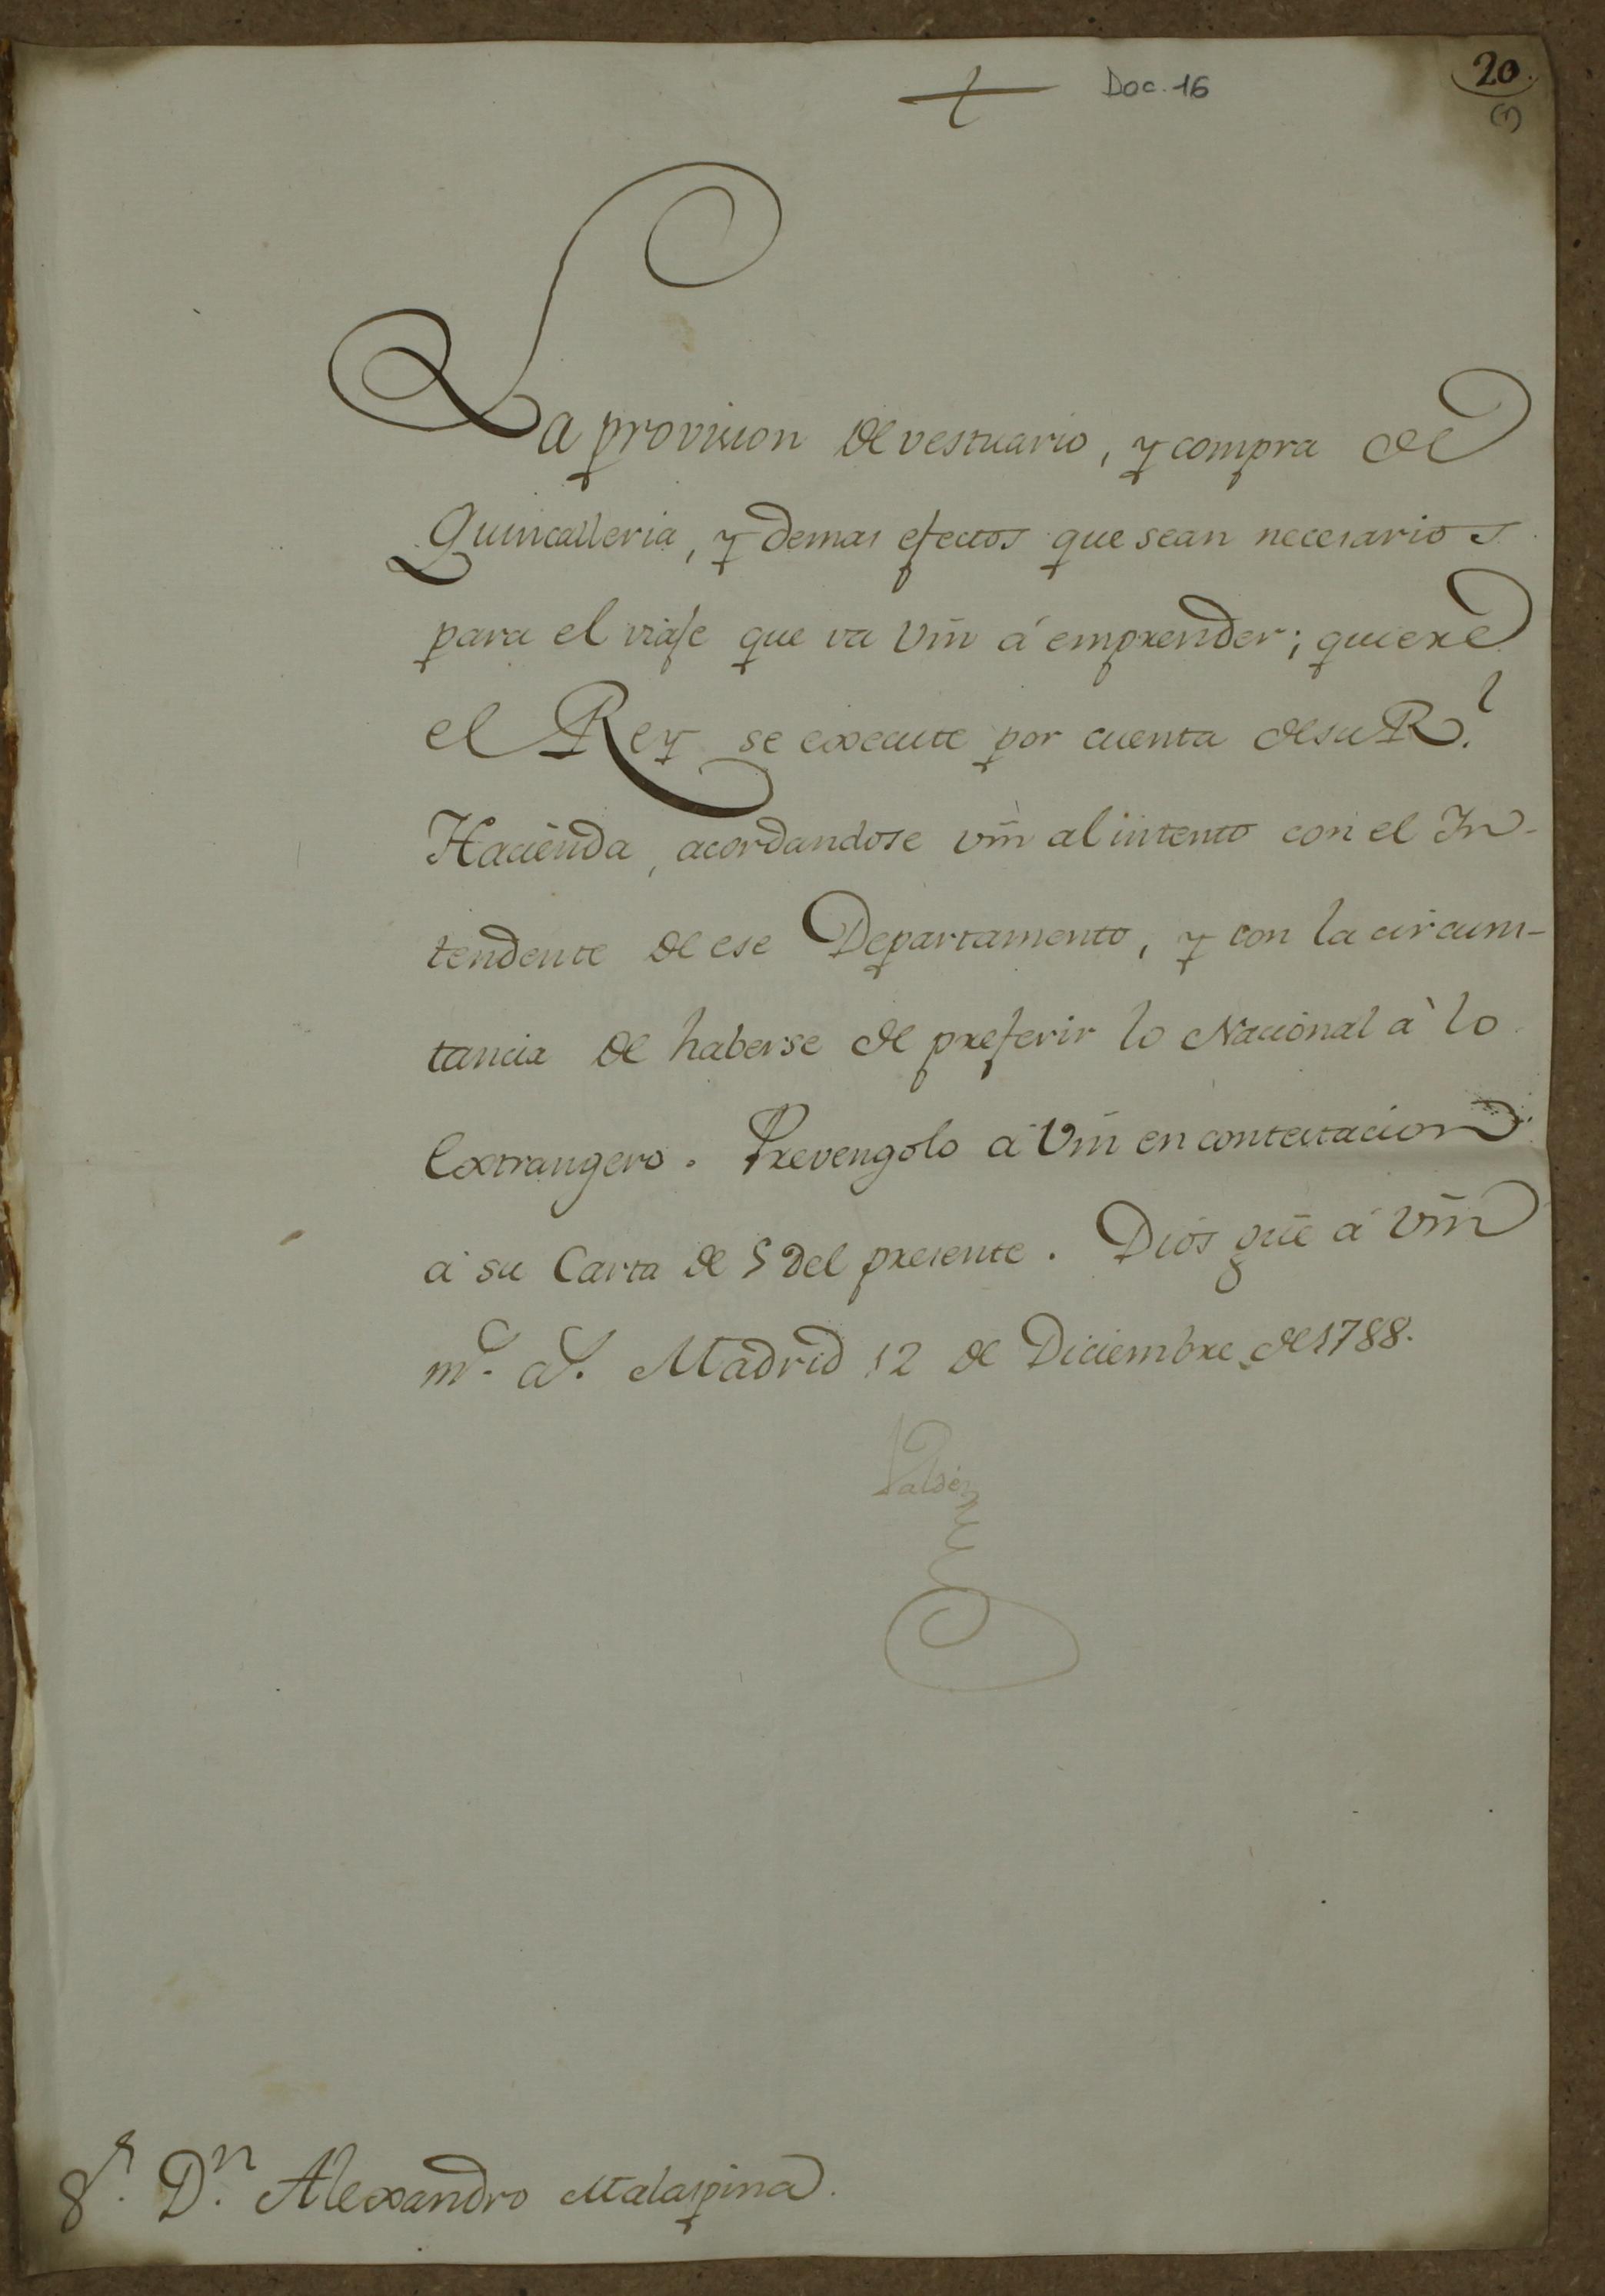 Doc. 16
20.
(1)
La provision de vestuario, y compra de
Quincalleria, y demas efectos que sean necesarios
para el viaje que va Vm̃ á emprender; quiere
el Rey se execute por cuenta de su R.l
Hacienda, acordandose Vm̃ al intento con el In-
tendente de ese Departamento, y con la circuns-
tancia de haberse de preferir lo Nacional à lo
Extrangero. Prevengolo á Vm̃ en contestacion
á su Carta de 5 del presente. Dios güe á Vm̃
m.s a.s Madrid 12 de Diciembre de 1788.
Valdés
S.r D.n Alexandro Malaspina.